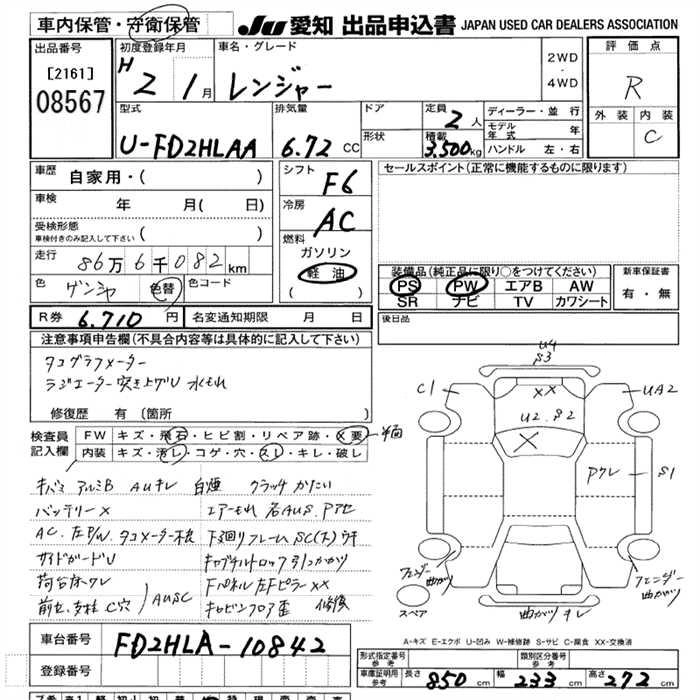 車内保管・守衛保管
JU 愛知 出品申込書 JAPAN USED CAR DEALERS ASSOCIATION
出品番号
[2161]
08567
初度登録年月
H 2 1月
車名・グレード
レンジャー
2WD
・
4WD
評価点
R
外装 内装
C
型式
U-FD2HLAA
排気量
6.72 CC
ドア
形状
定員 2人
積載 3,500kg
ディーラー・並行
モデル年式 年
ハンドル 左・右
車歴
自家用・( )
車検 年 月( 日)
受検形態
車検付きのみ記入して下さい ( )
走行 86万6千082km
色 ゲンシャ 色替 色コード
R券 6.710円 名変通知期限 月 日
シフト
F6
冷房
AC
燃料
ガソリン
軽油
( )
セールスポイント(正常に機能するものに限ります)
装備品(純正品に限り○をつけてください)
PS PW エアB AW
SR ナビ TV カワシート
新車保証書
有・無
後日品
注意事項申告欄(不具合内容等は具体的に記入して下さい)
タコグラフメーター
ラジエーター突き上げU 水もれ
修復歴 有 [箇所 ]
検査員
記入欄
FW キズ・飛石・ヒビ割・リペア跡・X要
内装 キズ・汚レ・コゲ・穴・スレ・キレ・破レ
キバミ アルミB AUキレ 白煙 クラッチかたい
バッテリーX エアーもれ 名AUS.Pアセ
AC、左P/W、タコメーター不良 下回りフレームSC(大)ウキ
サイドガードU キャブチルトロック引っかかり
荷台床ワレ Fパネル左FピラーXX
前立、支柱C穴 AUSC キャビンフロア歪 修後
U4
S3
C1
XX
UA2
U2.S2
X
Pクレ
S1
フェンダー曲がり
フェンダー曲がり
スペア
曲がりキレ
A-キズ E-エクボ U-凹み W-補修跡 S-サビ C-腐食 XX-交換済
車台番号 FD2HLA-10842
登録番号
型式指定番号 参考
類別区分番号 参考
車庫証明用 参考
長さ 850cm 幅 233cm 高さ 272cm